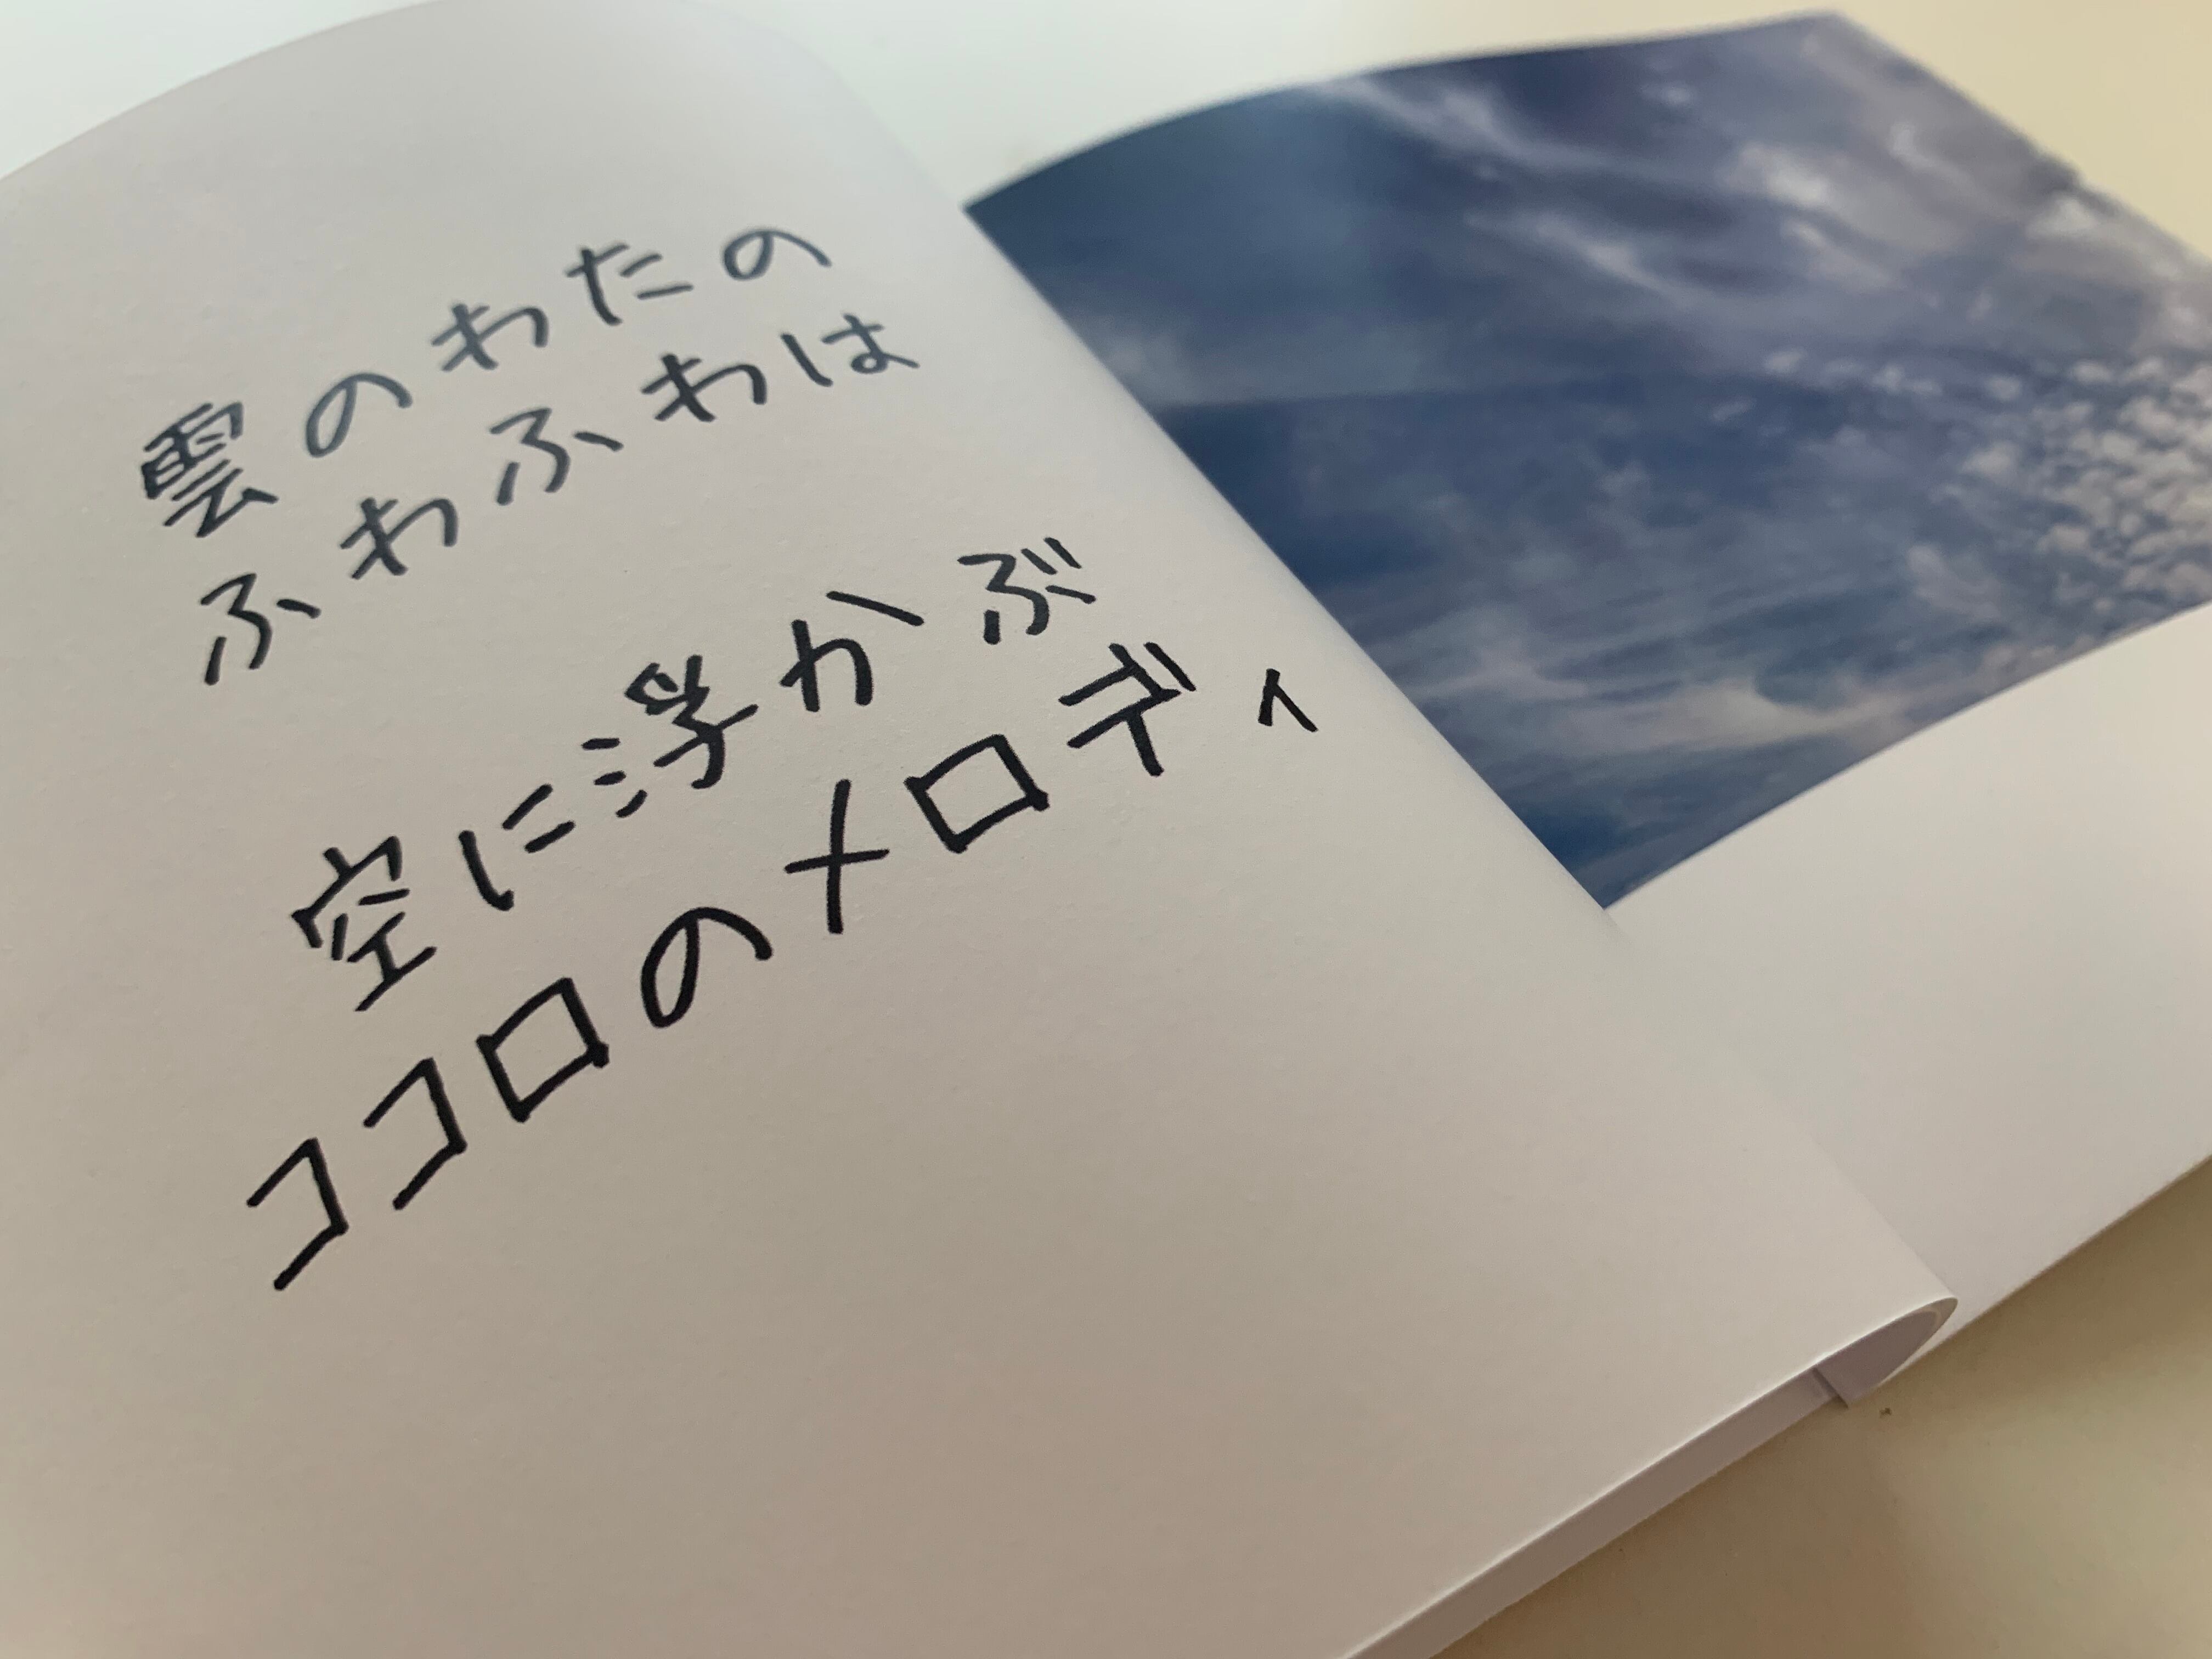 雲のわたの
ふわふわは
空に浮かぶ
ココロのメロディ